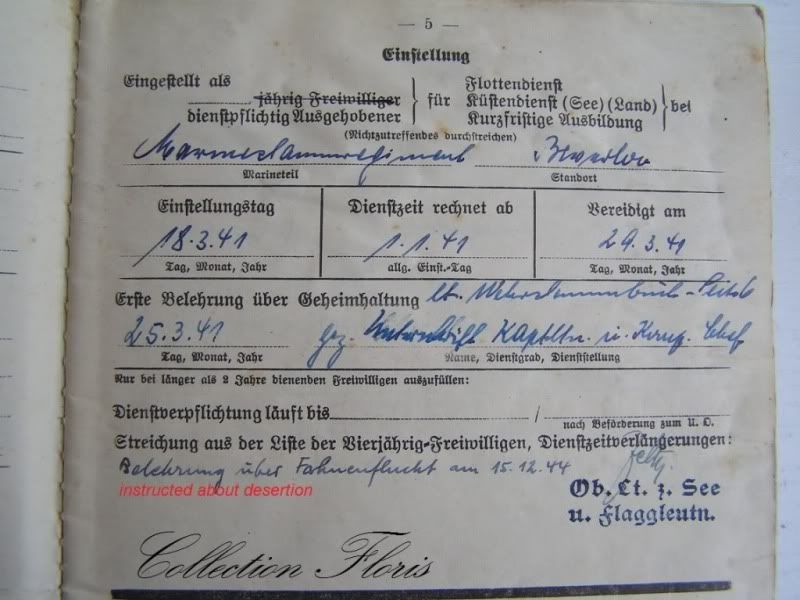 — 5 —
Einstellung
Eingestellt als
jährig Freiwilliger
dienstpflichtig Ausgehobener
für
Flottendienst
Küstendienst (See) (Land)
Kurzfristige Ausbildung
bei
(Nichtzutreffendes durchstreichen)
Marinestammregiment Beverloo
Marineteil Standort
Einstellungstag Dienstzeit rechnet ab Vereidigt am
18.3.41 1.1.41 29.3.41
Tag, Monat, Jahr allg. Einst.-Tag Tag, Monat, Jahr
Erste Belehrung über Geheimhaltung lt. Wehrstammbuch-
25.3.41 gez. Kaptltn. u. Komp. Chef
Tag, Monat, Jahr Name, Dienstgrad, Dienststellung
Nur bei länger als 2 Jahre dienenden Freiwilligen auszufüllen:
Dienstverpflichtung läuft bis /
nach Beförderung zum U. O.
Streichung aus der Liste der Vierjährig-Freiwilligen, Dienstzeitverlängerungen:
Belehrung über Fahnenflucht am 15.12.44
instructed about desertion
Ob. Lt. z. See
u. Flaggleutn.
Collection Floris